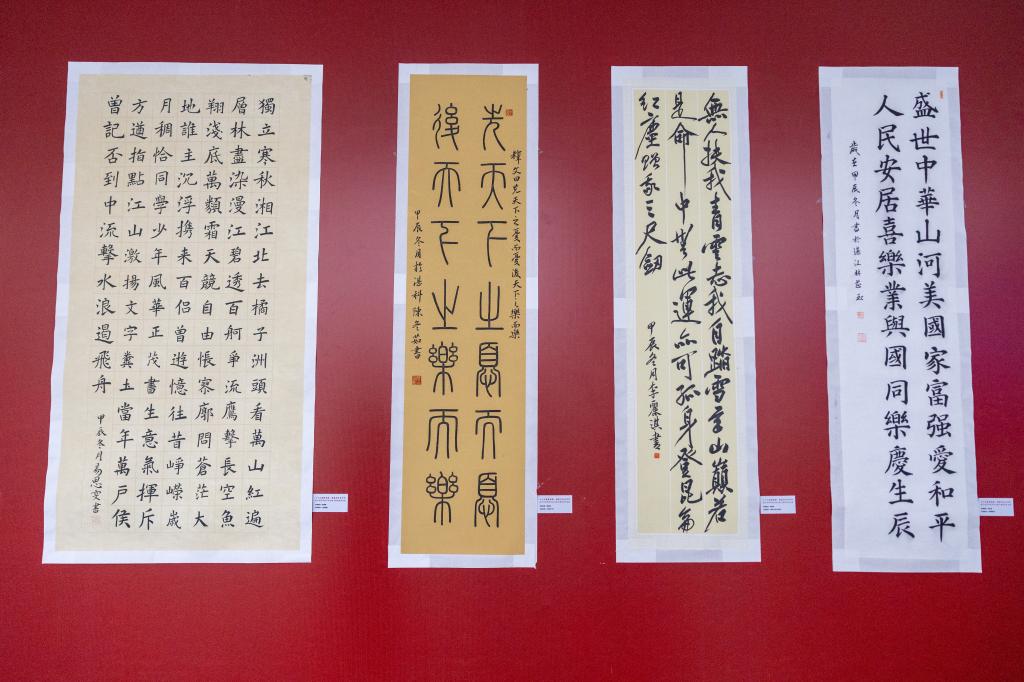 獨立寒秋湘江北去橘子洲頭看萬山紅遍
層林盡染漫江碧透百舸爭流鷹擊長空魚
翔淺底萬類霜天競自由悵寥廓問蒼茫大
地誰主沉浮携来百侣曾遊憶往昔崢嶸歲
月稠恰同學少年風華正茂書生意氣揮斥
方遒指點江山激揚文字糞土當年萬戶侯
曾記否到中流擊水浪遏飛舟
甲辰冬月易思雯書
釋文曰先天下之憂而憂後天下之樂而樂
先天下之憂而憂
後天下之樂而樂
甲辰冬月於湛科陳冬茹書
無人扶我青雲志我自踏雪至山巔若
是命中無此運亦可孤身登昆侖
紅塵贈我三尺劍
甲辰冬月李麗淇書
盛世中華山河美國家富强愛和平
人民安居喜樂業與國同樂慶生辰
歲在甲辰冬月書於湛江